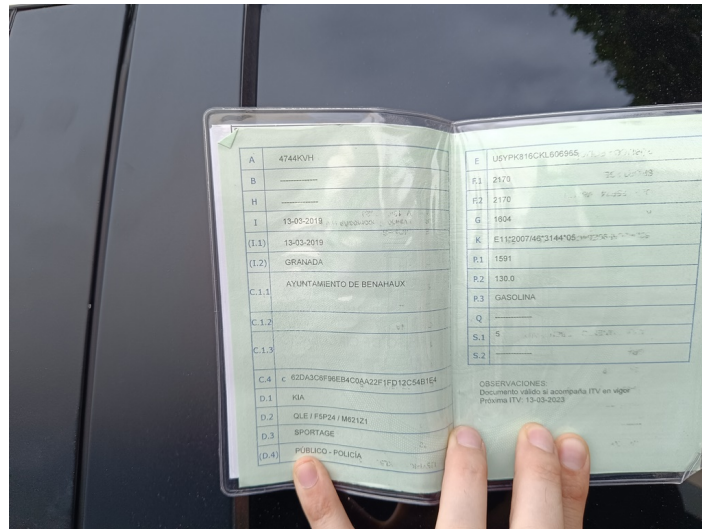 A 4744KVH
B ----------
H ----------
I 13-03-2019
(I.1) 13-03-2019
(I.2) GRANADA
C.1.1 AYUNTAMIENTO DE BENAHAUX
C.1.2
C.1.3
C.4 c 62DA3C6F96EB4C0AA22F1FD12C54B1E4
D.1 KIA
D.2 QLE / F5P24 / M621Z1
D.3 SPORTAGE
(D.4) PÚBLICO - POLICÍA
E U5YPK816CKL606965
F.1 2170
F.2 2170
G 1604
K E11*2007/46*3144*05
P.1 1591
P.2 130.0
P.3 GASOLINA
Q ----------
S.1 5
S.2 ----------
OBSERVACIONES:
Documento válido si acompaña ITV en vigor
Próxima ITV: 13-03-2023